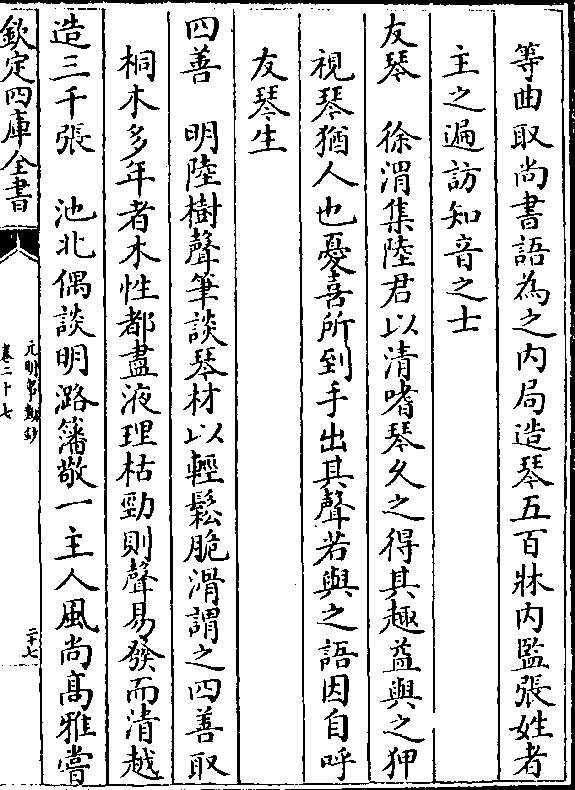 等曲取尚書語為之内局造琴五百牀内監張姓者
主之遍訪知音之士
友琴　徐渭集陸君以清嗜琴久之得其趣益與之狎
視琴猶人也憂喜所到手出其聲若與之語因自呼
友琴生
四善　明陸樹聲筆談琴材以輕鬆脆滑謂之四善取
桐木多年者木性都盡液理枯勁則聲易發而清越
造三千張　池北偶談明潞藩敬一主人風尚髙雅嘗
欽定四庫全書
元明事類鈔
卷二十七
二十七